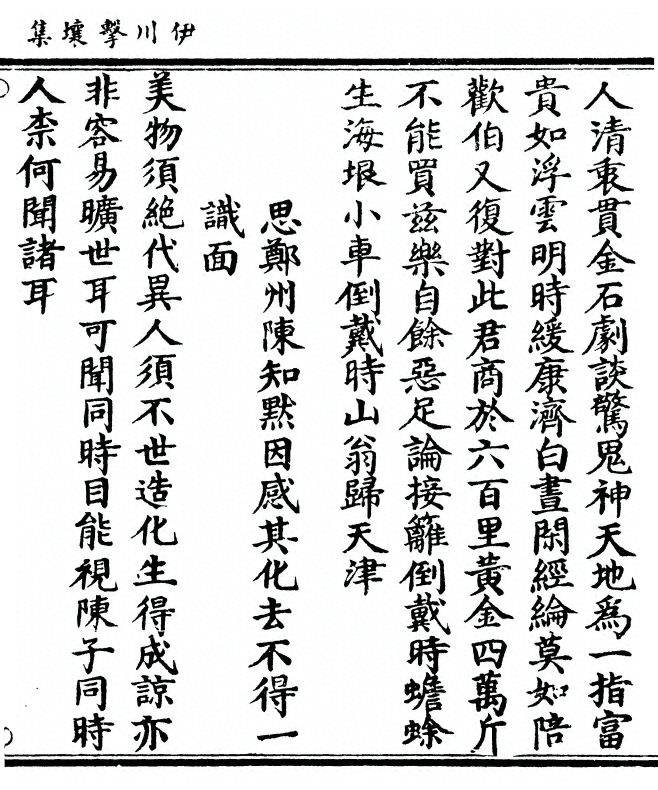 伊川擊壤集
人清衷貫金石劇談驚鬼神天地為一指富
貴如浮雲明時緩康濟白晝閑經綸莫如陪
歡伯又復對此君商於六百里黃金四萬斤
不能買兹樂自餘惡足論接籬倒戴時蟾蜍
生海垠小車倒戴時山翁歸天津
思鄭州陳知默因感其化去不得一
識面
美物須絕代異人須不世造化生得成諒亦
非容易曠世耳可聞同時目能視陳子同時
人柰何聞諸耳